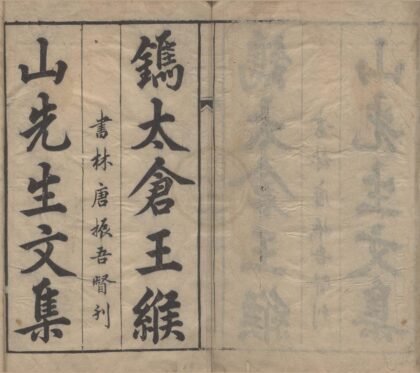 鐫太倉王緱
書林唐振吾賢刊
山先生文集